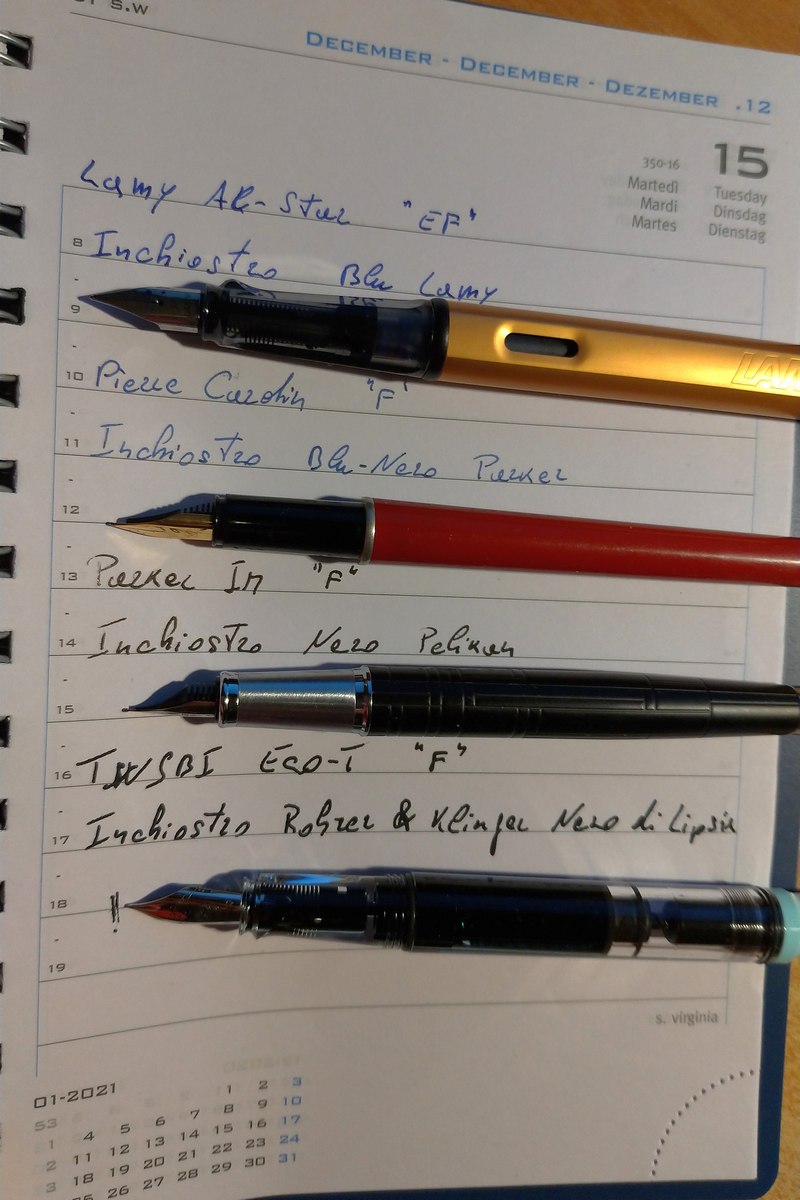 S.W
DECEMBER - DECEMBER - DEZEMBER .12
350-16 15
Martedì Tuesday
Mardi Dinsdag
Martes Dienstag
Lamy Al-Star "EF"
8 Inchiostro Blu Lamy
9
LAM
10 Pierre Cardin "F"
11 Inchiostro Blu-Nero Parker
12
13 Parker Im "F"
14 Inchiostro Nero Pelikan
15
16 TWSBI Eco-T "F"
17 Inchiostro Rohrer & Klinger Nero di Lipsia
18
19
s. virginia
01-2021
53 1 2 3
1 4 5 6 7 8 9 10
2 11 12 13 14 15 16 17
3 18 19 20 21 22 23 24
25 26 27 28 29 30 31